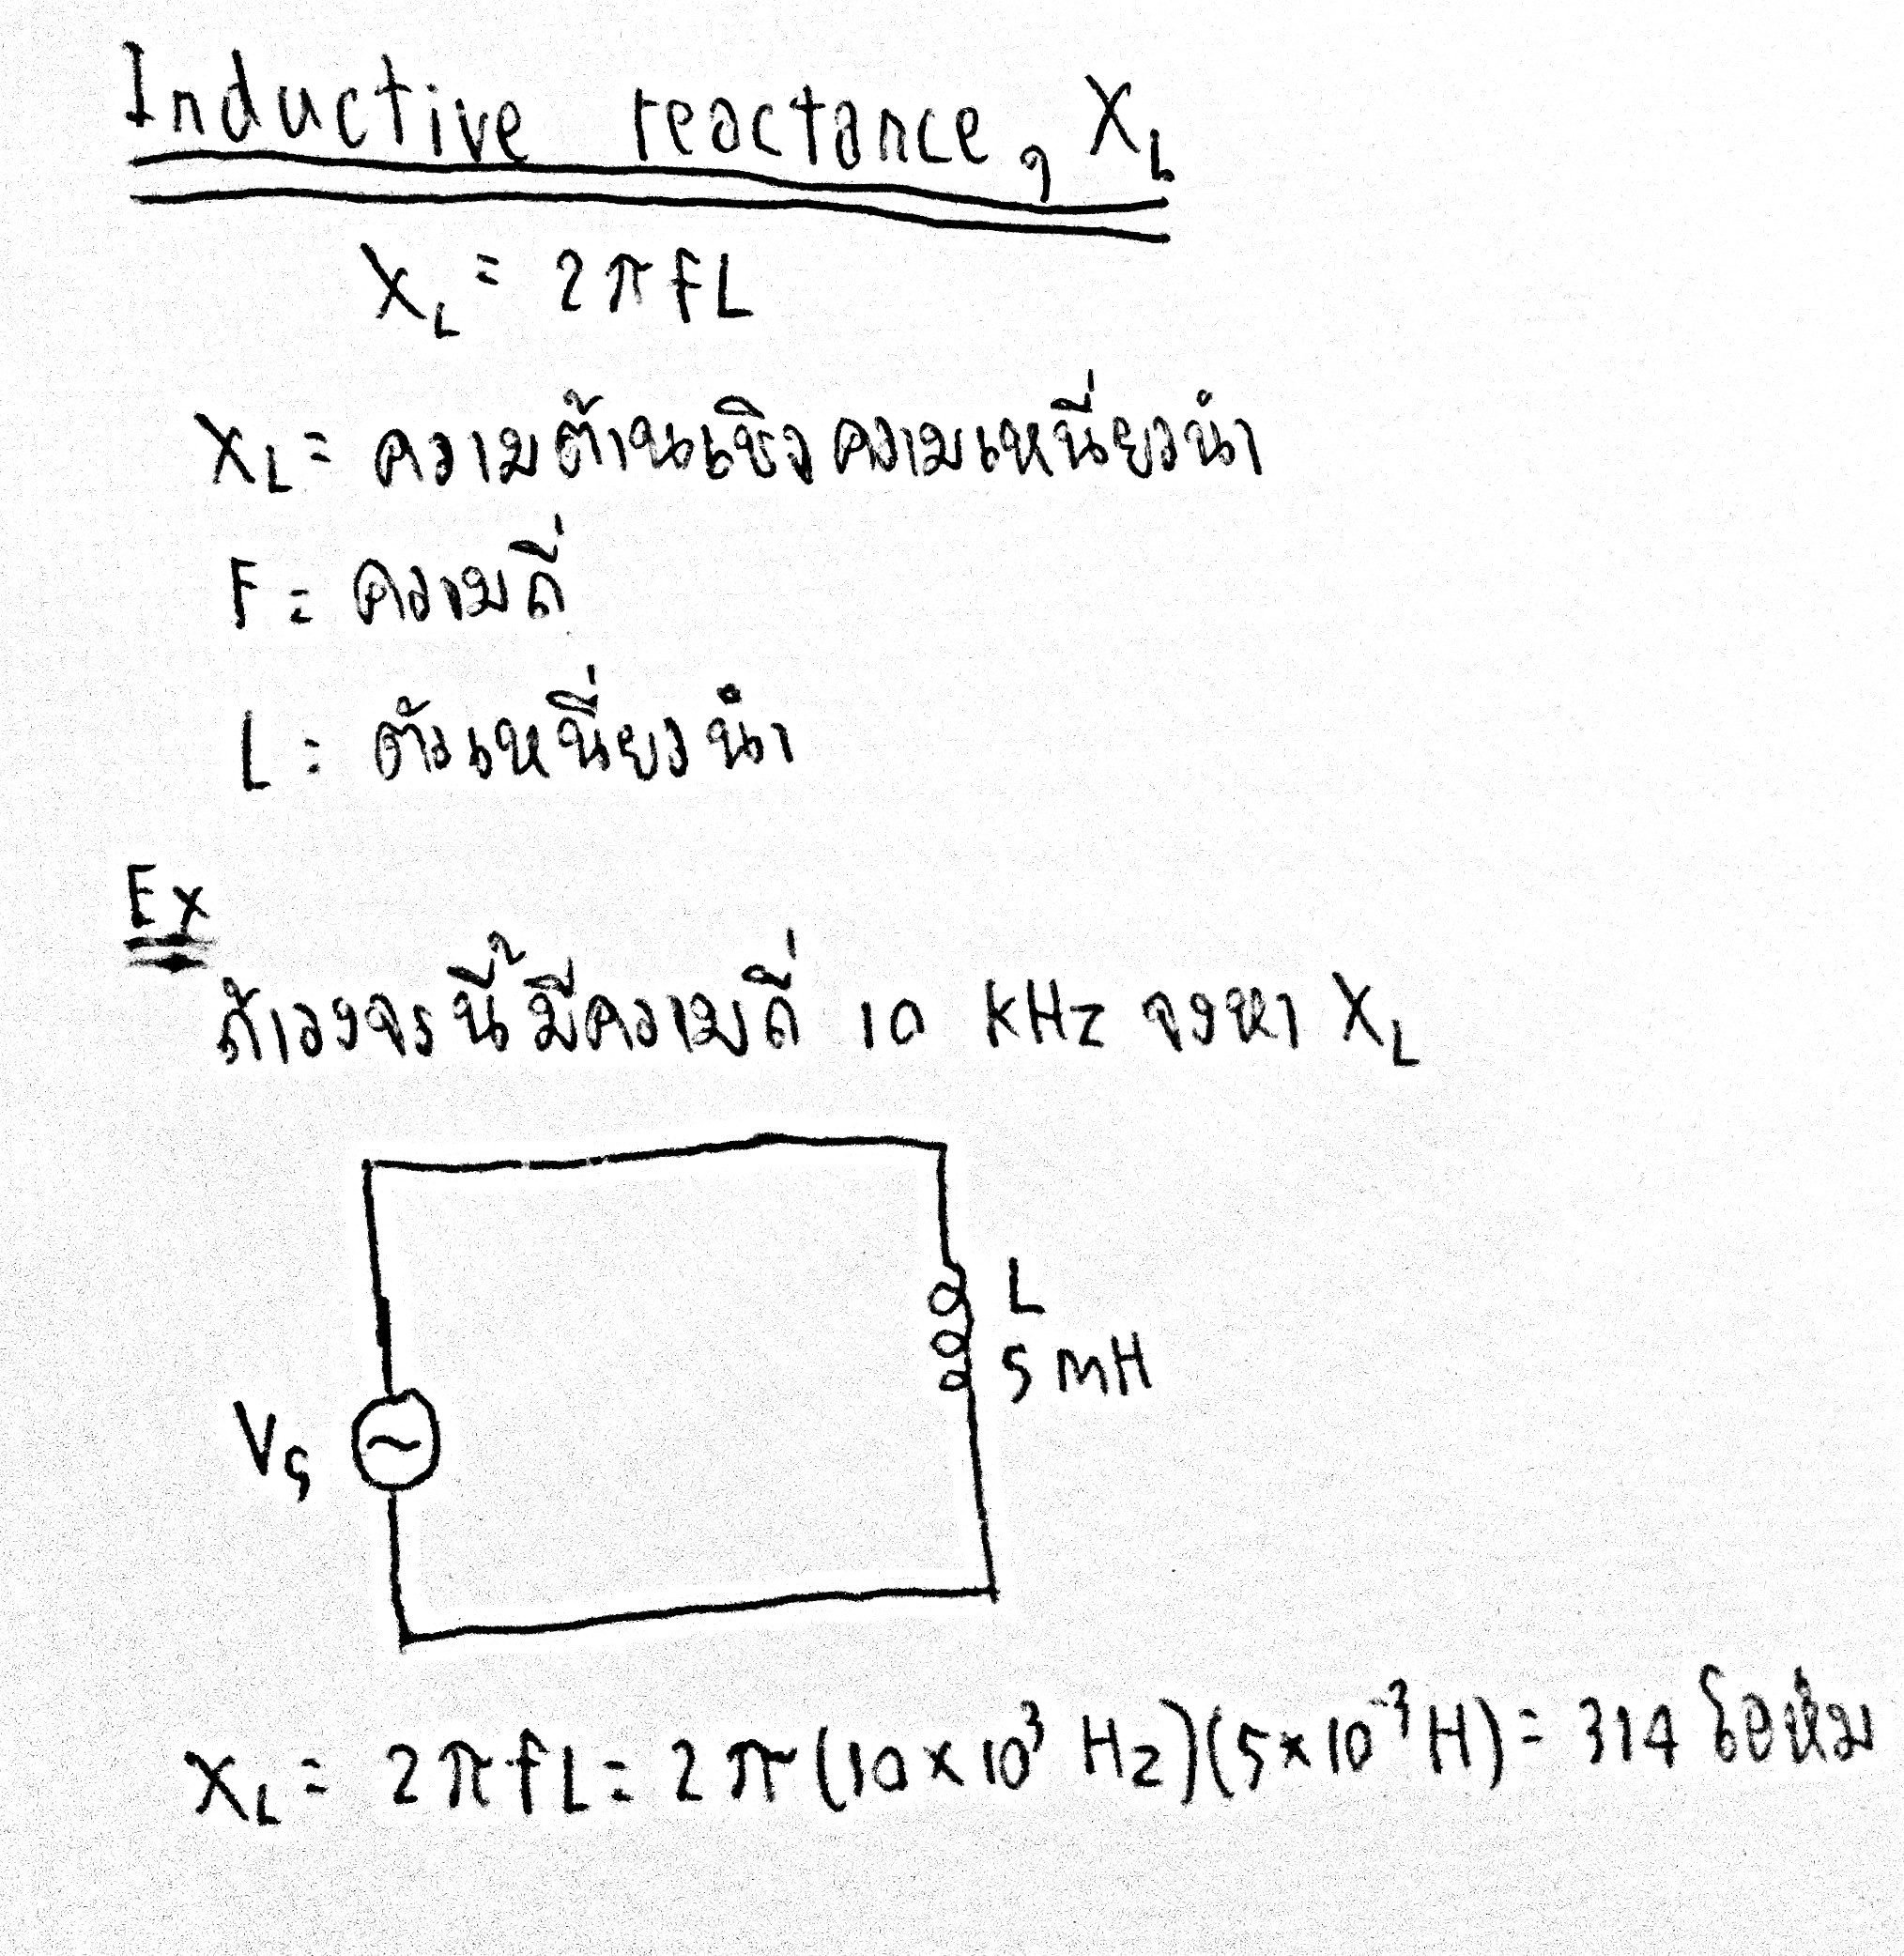 Inductive reactance, X_L
X_L = 2πfL
X_L = ความต้านเชิงความเหนี่ยวนำ
F = ความถี่
L = ตัวเหนี่ยวนำ
Ex
ถ้าวงจรนี้มีความถี่ 10 kHz จงหา X_L
L
5 mH
V_S
X_L = 2πfL = 2π(10×10³ Hz)(5×10⁻³ H) = 314 โอห์ม